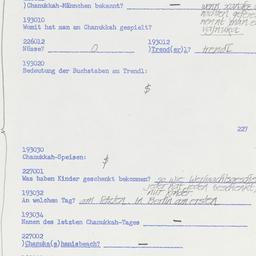 )Chanukkah-Männchen bekannt? —
193010
Womit hat man an Chanukkah gespielt?
226012 193012
Nüsse? O )Trend(er)l? trendl
193020
Bedeutung der Buchstaben am Trendl:
227
193030
Chanukkah-Speisen:
227001
Was haben Kinder geschenkt bekommen?
jeder hat jeden beschenkt,
nur Kinder
193032
An welchem Tag? am letzten, in Berlin am ersten
193034
Namen des letzten Chanukkah-Tages —
227002
)Chanuka(s)hansibesch? —